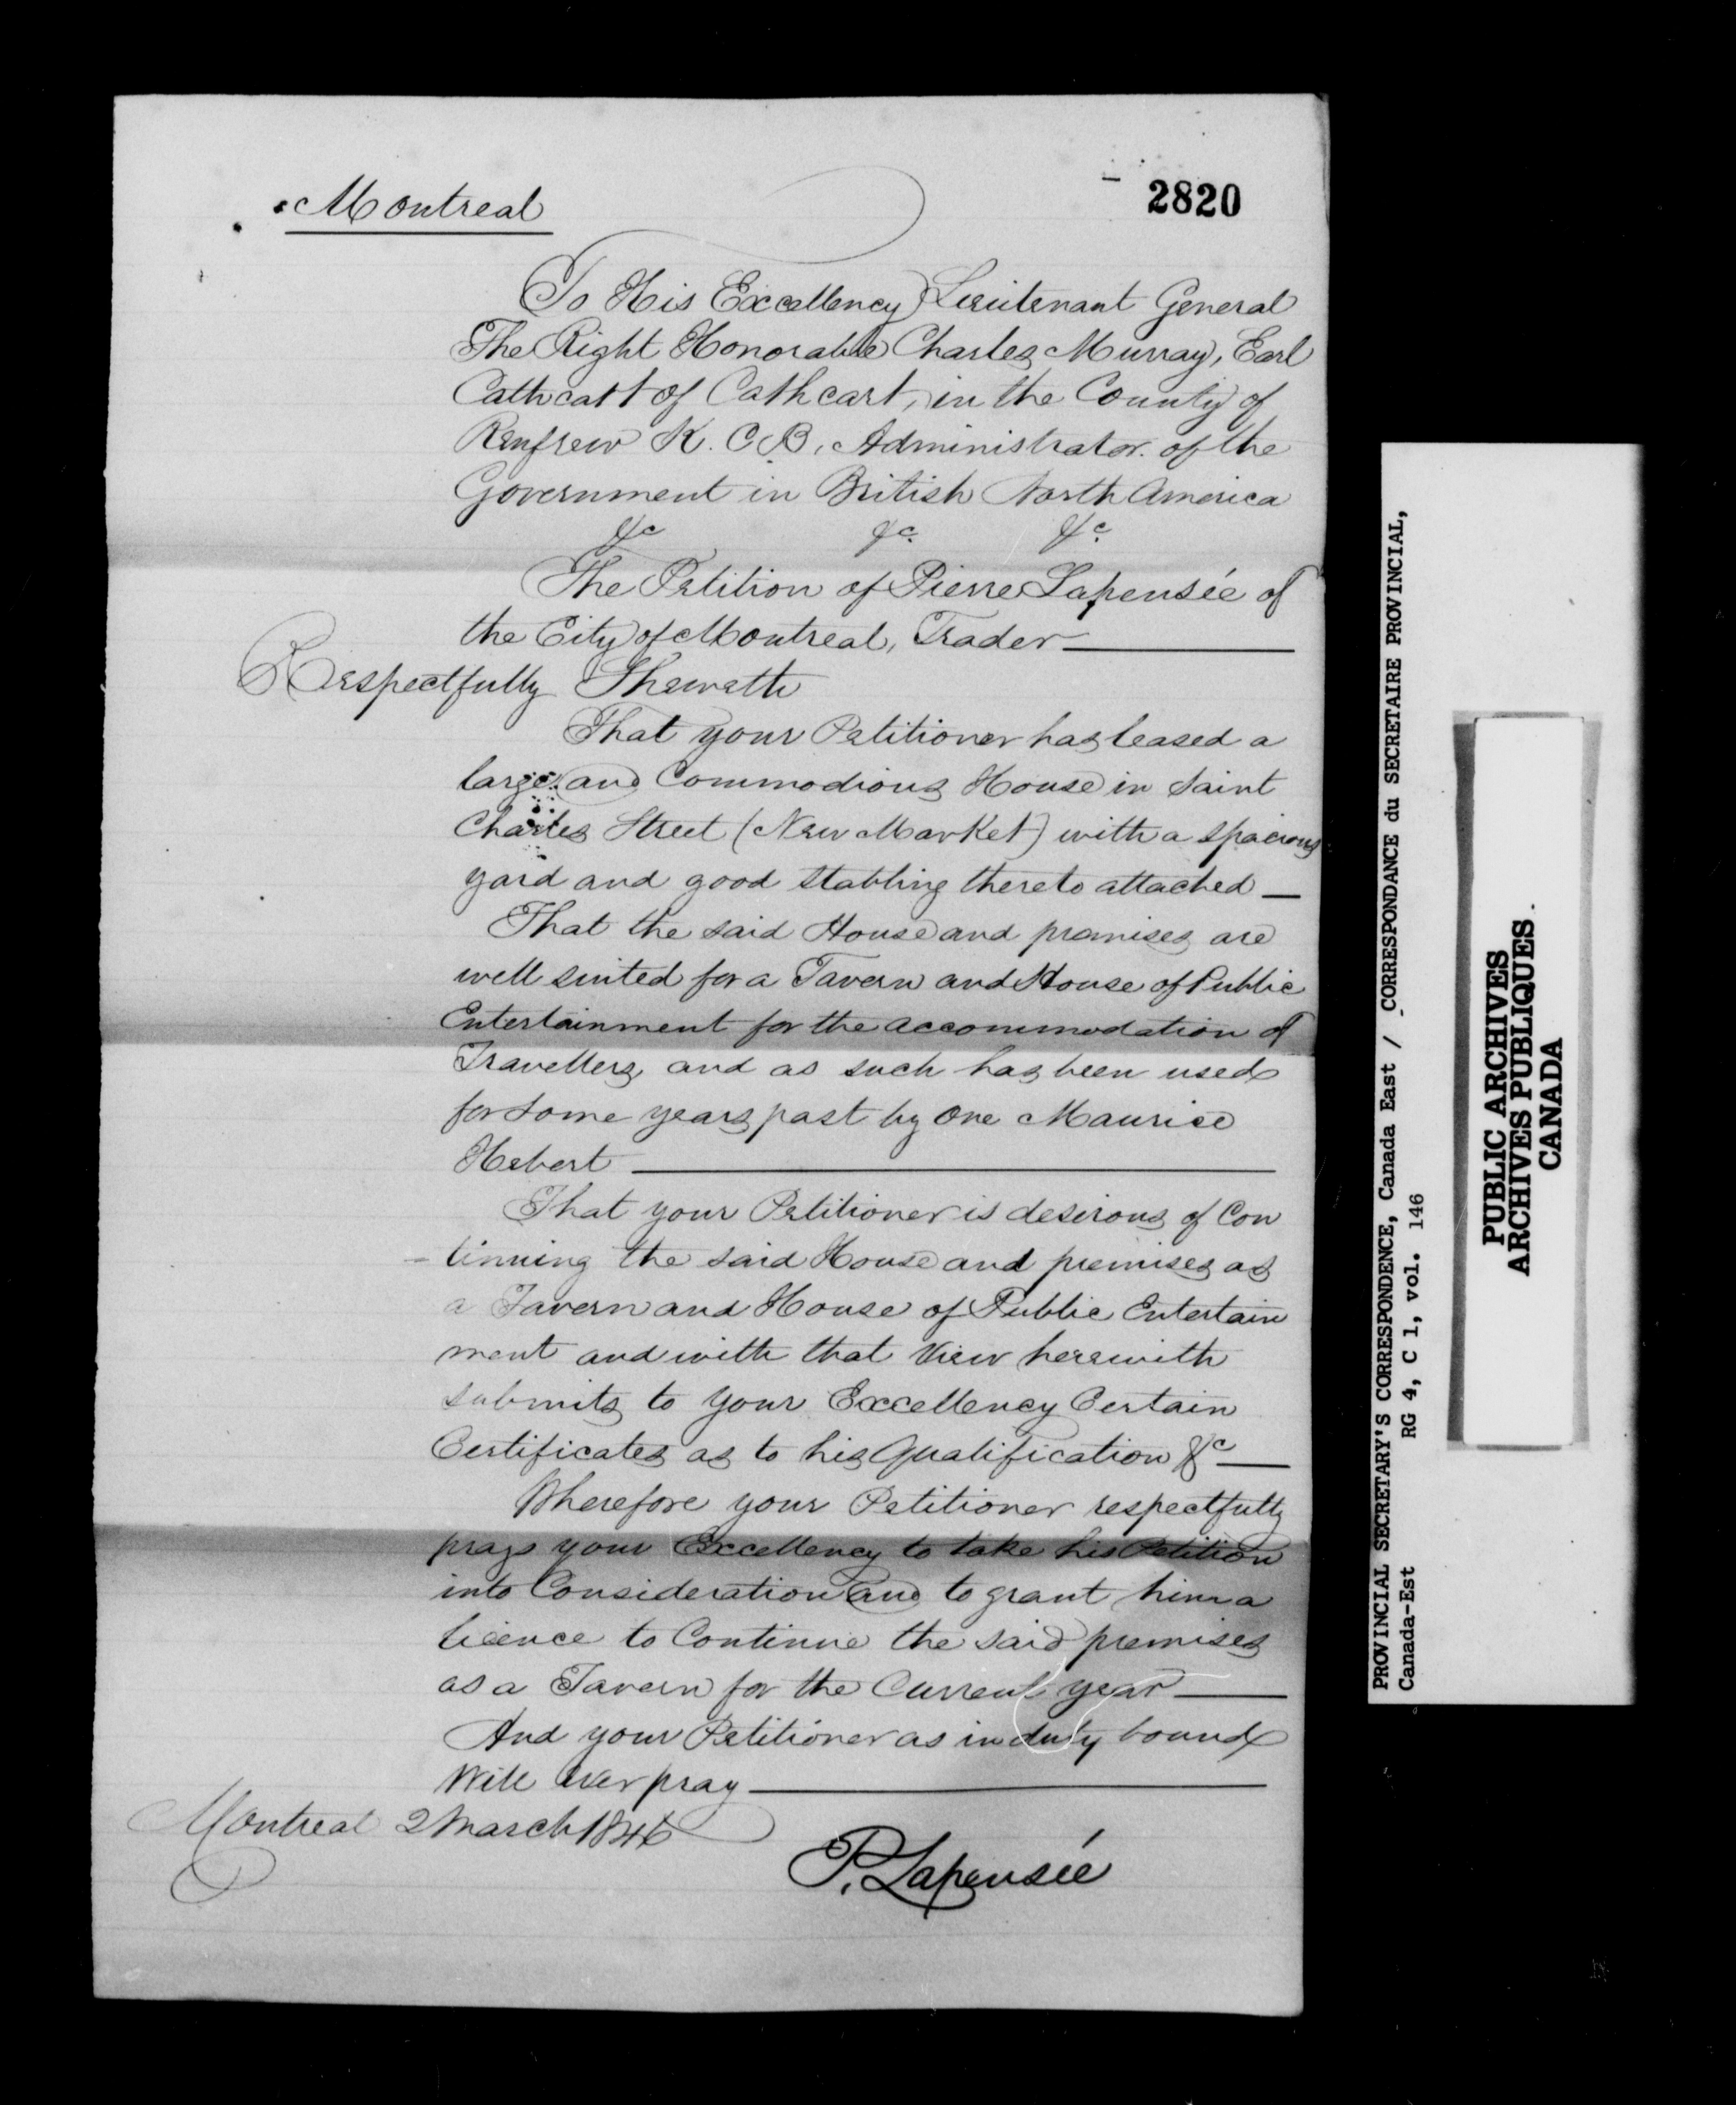 Montreal
2820
To His Excellency Lieutenant General
The Right Honorable Charles Murray, Earl
Cathcart of Cathcart, in the County of
Renfrew K. C. B. Administrator of the
Government in British North America
&c &c. &c.
The Petition of Pierre Lapensée of
the City of Montreal, Trader
Respectfully Sheweth
That your Petitioner has leased a
large and Commodious House in Saint
Charles Street (New Market) with a spacious
yard and good stabling thereto attached
That the said House and premises are
well suited for a Tavern and House of Public
Entertainment for the accommodation of
Travellers, and as such has been used
for some years past by one Maurice
Hebert
That your Petitioner is desirous of Con
-tinuing the said House and premises as
a Tavern and House of Public Entertain
ment and with that View herewith
submits to your Excellency Certain
Certificates as to his Qualification &c
Wherefore your Petitioner respectfully
prays your Excellency to take his Petition
into Consideration and to grant him a
licence to Continue the said premises
as a Tavern for the Current year
And your Petitioner as in duty bound
Will ever pray
Montreal 2 March 1846
P. Lapensée
PROVINCIAL SECRETARY'S CORRESPONDENCE, Canada East / CORRESPONDANCE du SECRETAIRE PROVINCIAL,
Canada-Est RG 4, C 1, vol. 146
PUBLIC ARCHIVES
ARCHIVES PUBLIQUES
CANADA